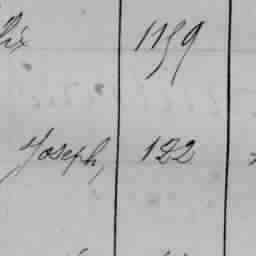 1159
Joseph, 122